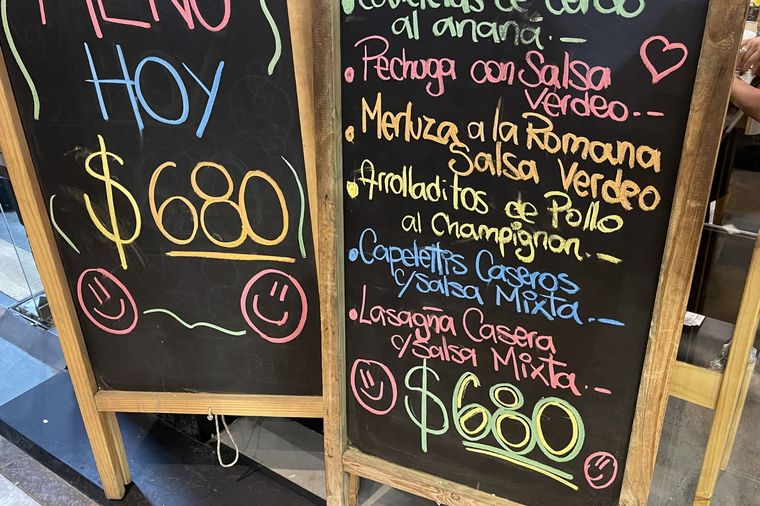 MENÚ
HOY
$680
de Cerdo
al ananá.-
• Pechuga con Salsa
Verdeo.-
• Merluza a la Romana
Salsa Verdeo
• Arrolladitos de Pollo
al Champignon.-
• Capelettis Caseros
c/salsa Mixta.-
• Lasagña Casera
c/salsa Mixta.-
$680